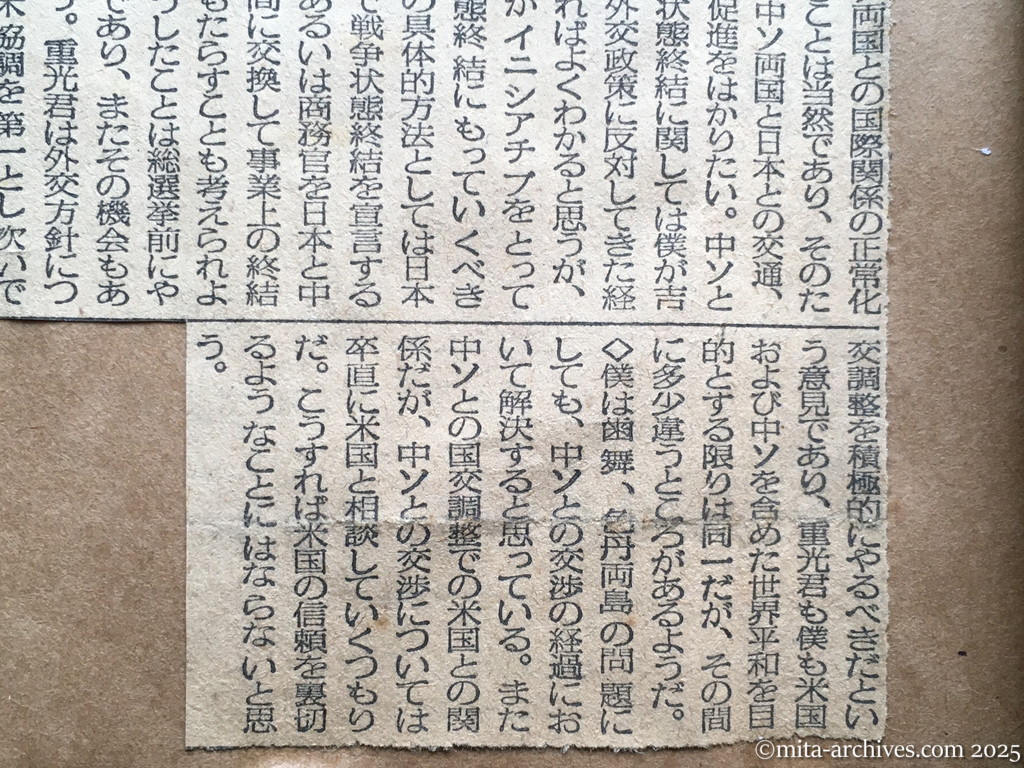 両国との国際関係の正常化
ことは当然であり、そのた
中ソ両国と日本との交通、
促進をはかりたい。中ソと
状態終結に関しては僕が吉
外交政策に反対してきた経
ればよくわかると思うが、
が イニシアチブをとって
態終結にもっていくべき
の具体的方法としては日本
で戦争状態終結を宣言する
あるいは商務官を日本と中
間に交換して事業上の終結
もたらすことも考えられよ
うしたことは総選挙前にや
であり、またその機会もあ
う。重光君は外交方針につ
米協調を第一とし次いで
交調整を積極的にやるべきだとい
う意見であり、重光君も僕も米国
および中ソを含めた世界平和を目
的とする限りは同一だが、その間
に多少違うところがあるようだ。
◇僕は歯舞、色丹両島の問題に
しても、中ソとの交渉の経過にお
いて解決すると思っている。また
中ソとの国交調整での米国との関
係だが、中ソとの交渉については
卒直に米国と相談していくつもり
だ。こうすれば米国の信頼を裏切
るようなことにはならないと思
う。
©mita-archives.com 2025